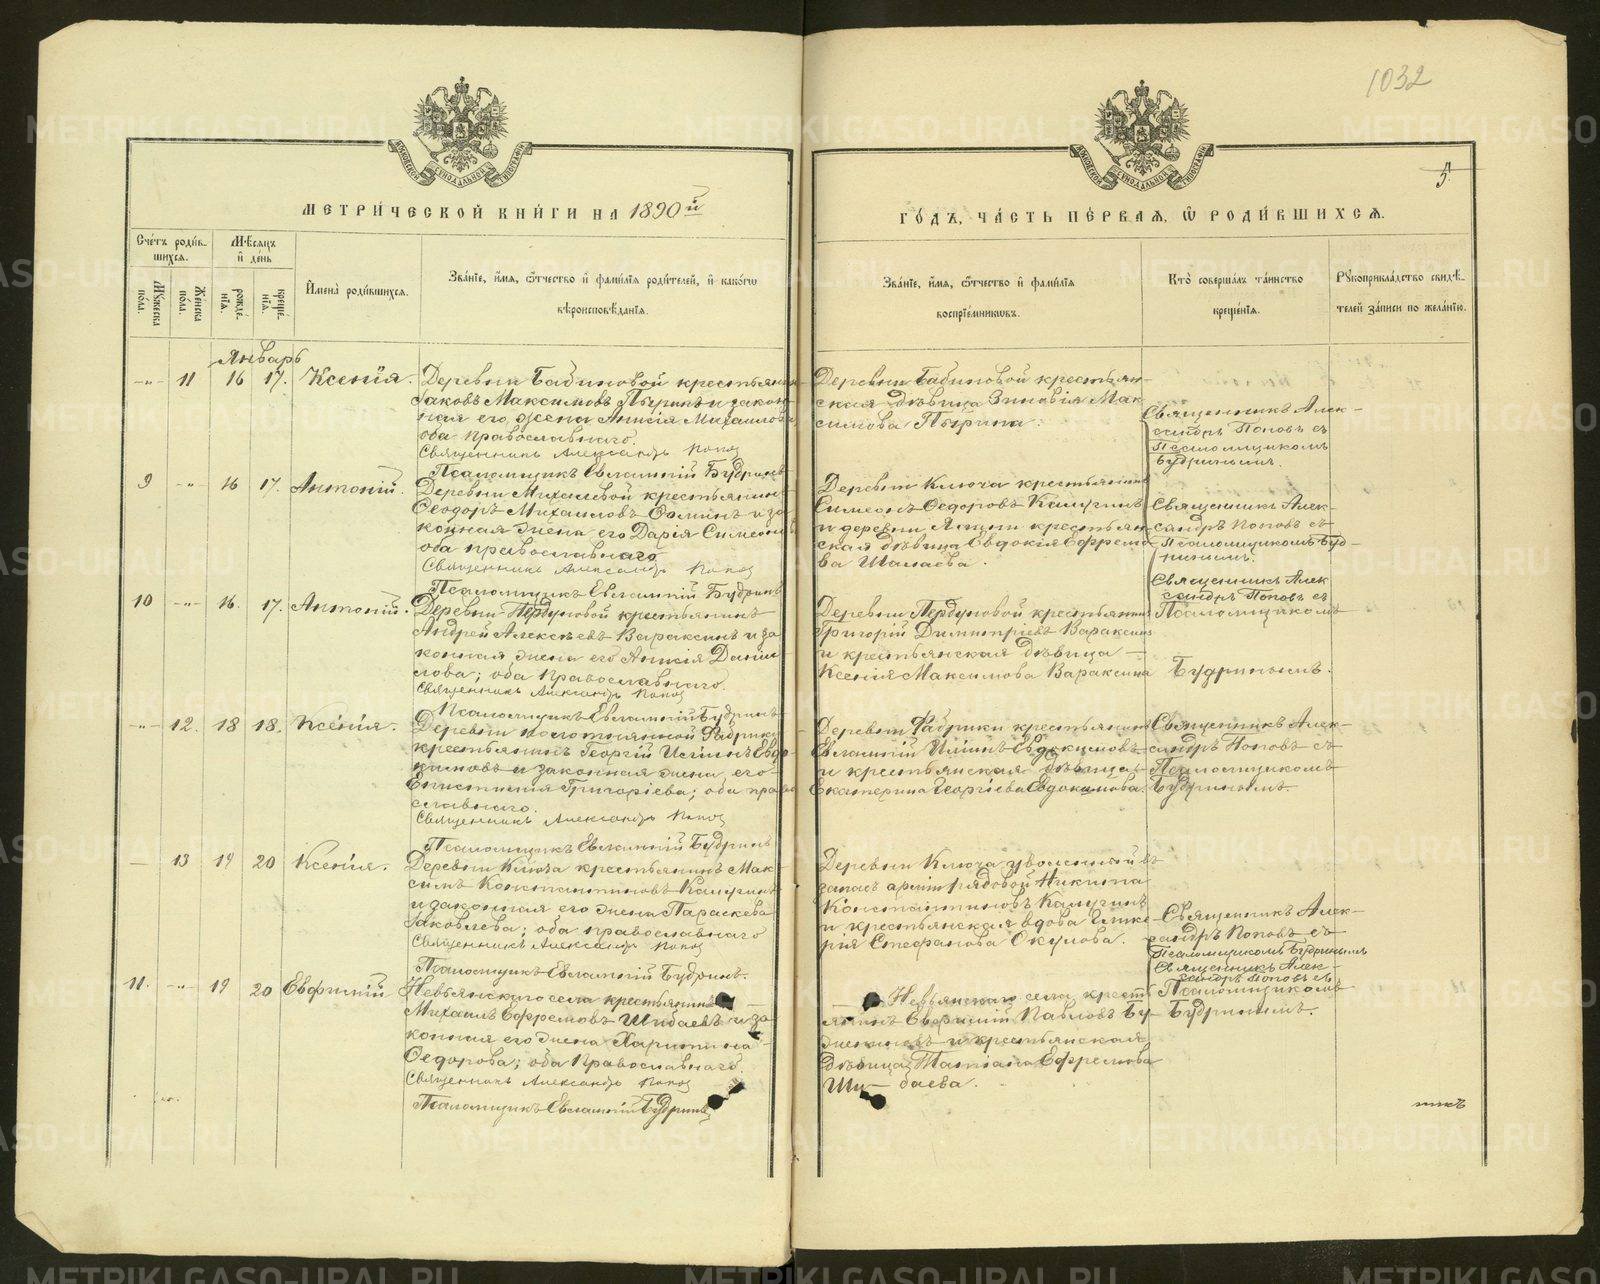 1032
5.
МЕТРИ́ЧЕСКОЙ КНИ́ГИ НА 1890й
ГО́ДЪ, ЧА́СТЬ ПЕ́РВАЯ, Ѡ РОДИ́ВШИХСЯ.
Сче́тъ роди́в-
шихся.
Му́жеска
по́ла.
Же́нска
по́ла.
Мѣ́сяцъ
и день
рожде́-
нїя.
креще́-
нїя.
Имена̀ роди́вшихся.
Зва́нїе, и́мя, ѻ҆́тчество и фами́лїя роди́телей, и како́гѡ
вѣроисповѣ́данїя.
Зва́нїе, и́мя, ѻ҆́тчество и фами́лїя
воспрїе́мникѡвъ.
Кто̀ соверша́лъ та́инство
креще́нїя.
Рꙋкоприкла́дство свидѣ́-
телей за́писи по жела́нїю.
Январь
-„- 11 16 17. Ксенія.
Деревни Бабиновой крестьянинъ
Іаковъ Максимовъ Пыринъ и закон-
ная его жена Анисія Михаилова
оба православнаго.
Священникъ Александръ Попов
Псаломщикъ Евлампій Будринъ
Деревни Бабиновой крестьян-
ская дѣвица Зиновія Мак-
симова Пырина.
Священникъ Алек-
сандръ Поповъ съ
Псаломщикомъ
Будринымъ.
9 -„- 16 17. Антоній.
Деревни Михалевой крестьянинъ
Ѳеодоръ Михаиловъ и за-
конная жена его Дарія Симеонова
оба православнаго
Священникъ Александръ Попов
Псаломщикъ Евлампій Будринъ
Деревни Ключа крестьянинъ
Симеонъ Ѳедоровъ Калугинъ
и деревни крестьян-
ская дѣвица Евдокія Ефремо-
ва Шалаева.
Священникъ Алек-
сандръ Поповъ съ
Псаломщикомъ Буд-
ринымъ.
10 -„- 16. 17. Антоній.
Деревни Пердуновой крестьянинъ
Андрей Алексѣевъ Вараксинъ и за-
конная жена его Анисія Дани-
лова; оба Православнаго.
Священникъ Александръ Попов
Псаломщикъ Евлампій Будринъ
Деревни Пердуновой крестьянинъ
Григорій Димитріевъ Вараксинъ
и крестьянская дѣвица —
Ксенія Максимова Вараксина
Священникъ Алек
сандръ Поповъ съ
Псаломщикомъ
Будринымъ.
-„- 12. 18 18. Ксенія.
Деревни Полотнянной Фабрики
крестьянинъ Георгій Илiинъ Евдо-
кимовъ и законная жена его
Епистимія Григоріева; оба право-
славнаго.
Священникъ Александръ Попов
Псаломщикъ Евлампій Будринъ
Деревни Фабрики крестьянинъ
Евлампій Иліинъ Евдокимовъ
и крестьянская дѣвица
Екатерина Георгіева Евдокимова.
Священникъ Алек-
сандръ Поповъ съ
Псаломщикомъ
Будринымъ
— 13 19 20 Ксенія.
Деревни Ключа крестьянинъ Мак-
симъ Константиновъ Калугинъ
и законная его жена Параскева
Іаковлева; оба православнаго
Священникъ Александръ Попов
Псаломщикъ Евлампій Будринъ.
Деревни Ключа уволенный въ
запасъ арміи рядовой Никита
Константиновъ Калугинъ
и крестьянская вдова Глике-
рія Стефанова Окулова.
Священникъ Алек-
сандръ Поповъ съ
Псаломщикомъ Будринымъ
11. -„- 19 20 Евфимій
Невьянскаго села крестьянинъ
Михаилъ Ефремовъ Шибаевъ и за-
конная его жена Харитина
Ѳедорова; оба Православнаго.
Священникъ Александръ Попов
Псаломщикъ Евлампій Будринъ
— Невьянскаго села кресть-
янинъ Евфимій Павловъ Бу-
и крестьянская
Дѣвица Татіана Ефремова
Ши— баева.
Священникъ Алек-
сандръ Поповъ съ
Псаломщикомъ
Будринымъ.
никъ